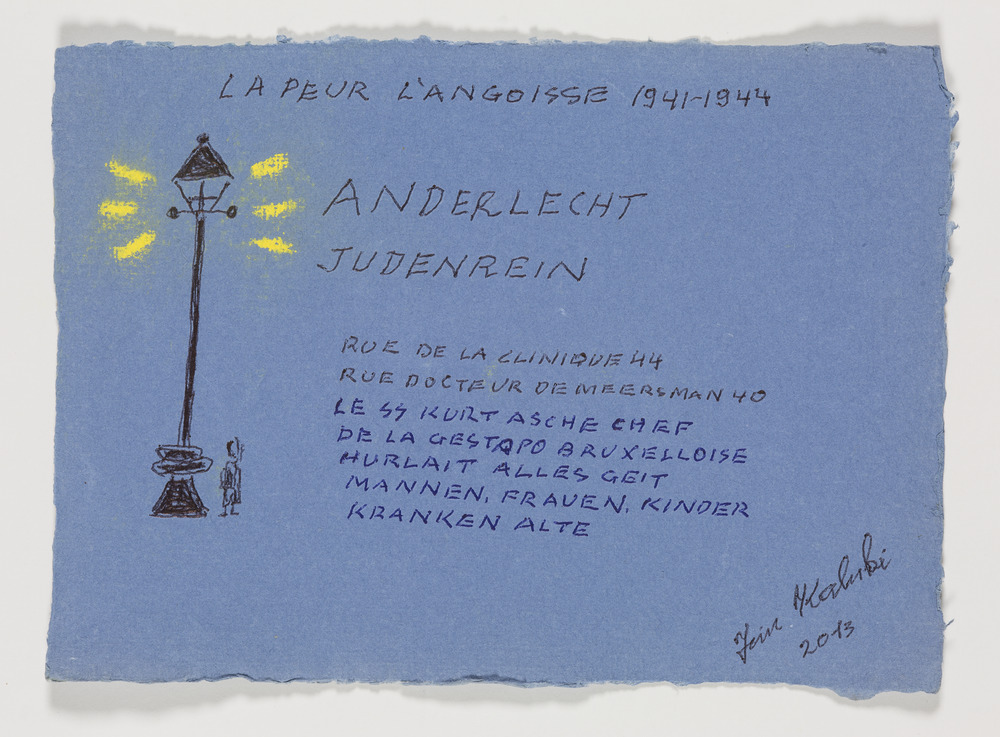 LA PEUR L'ANGOISSE 1941-1944
ANDERLECHT
JUDENREIN
RUE DE LA CLINIQUE 44
RUE DOCTEUR DE MEERSMAN 40
LE SS KURT ASCHE CHEF
DE LA GESTAPO BRUXELLOISE
HURLAIT ALLES GEIT
MANNEN, FRAUEN, KINDER
KRANKEN ALTE
2013